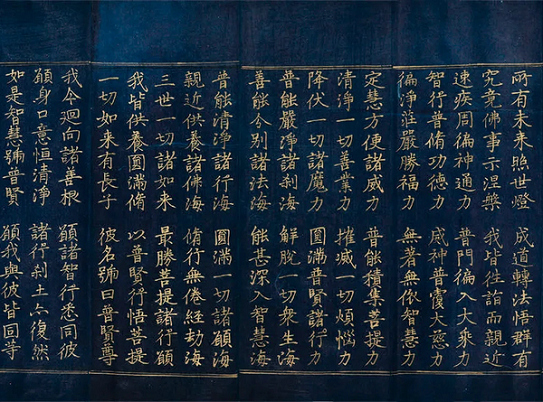 所有未来照世燈　成道轉法悟群有
究竟佛事示涅槃　我皆往詣而親近
速疾周徧神通力　普門徧入大乗力
智行普修功德力　威神普覆大慈力
徧淨莊嚴勝福力　無著無依智慧力
定慧方便諸威力　普能積集菩提力
清淨一切善業力　摧滅一切煩惱力
降伏一切諸魔力　圓滿普賢諸行力
普能嚴淨諸刹海　解脫一切衆生海
善能分別諸法海　能甚深入智慧海
普能清淨諸行海　圓滿一切諸願海
親近供養諸佛海　修行無倦經劫海
三世一切諸如來　最勝菩提諸行願
我皆供養圓滿修　以普賢行悟菩提
一切如來有長子　彼名號曰普賢尊
我今迴向諸善根　願諸智行悉同彼
願身口意恒清淨　諸行刹土亦復然
如是智慧號普賢　願我與彼皆同等